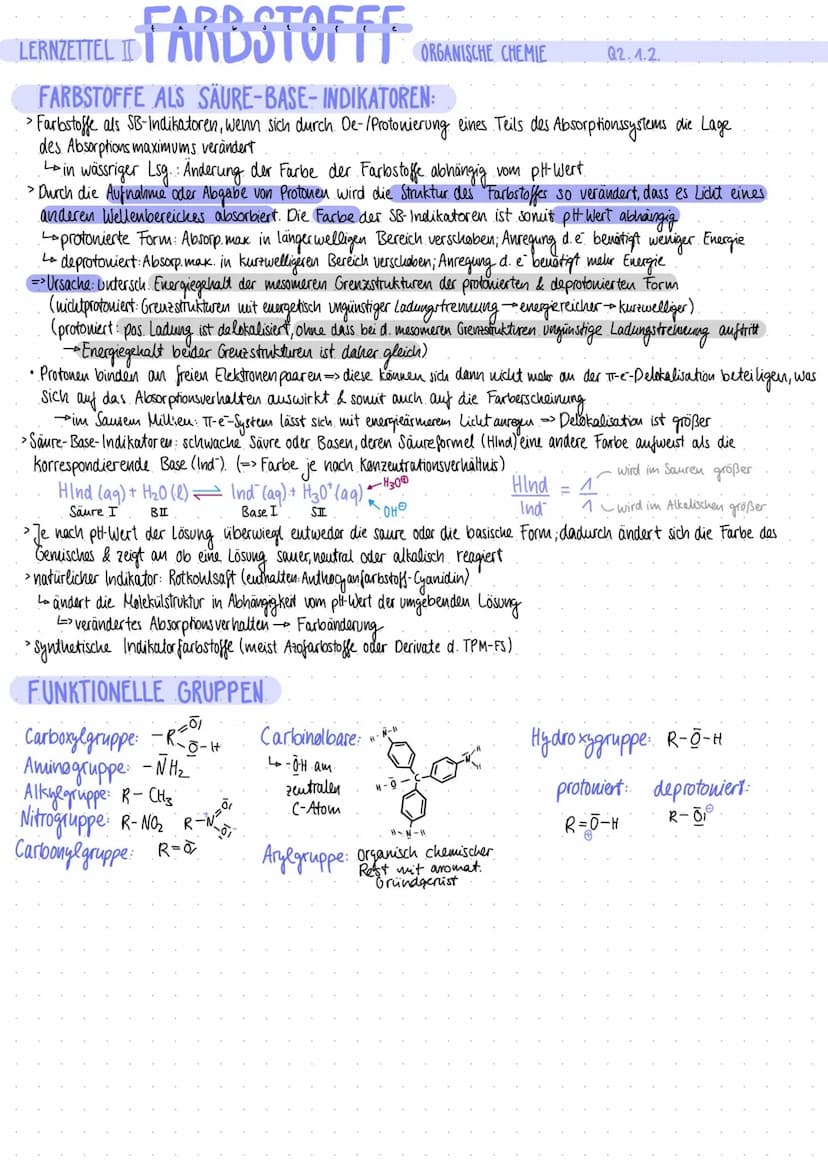 LERNZETTEL II FARBSTOFFE ORGANISCHE CHEMIE Q2.1.2.
farbstoffe
FARBSTOFFE ALS SÄURE-BASE-INDIKATOREN:
> Farbstoffe als SB-Indikatoren, wenn sich durch De-/Protonierung eines Teils des Absorptionssystems die Lage
des Absorptionsmaximums verändert
↳ in wässriger Lsg.: Änderung der Farbe der Farbstoffe abhängig vom pH-Wert
> Durch die Aufnahme oder Abgabe von Protonen wird die Struktur des Farbstoffes so verändert, dass es Licht eines
anderen Wellenbereiches absorbiert. Die Farbe der SB-Indikatoren ist somit pH-Wert abhängig
↳ protonierte Form: Absorp.max in längerwelligen Bereich verschoben; Anregung d. e⁻ benötigt weniger Energie
↳ deprotoniert: Absorp.max. in kurzwelligeren Bereich verschoben; Anregung d. e⁻ benötigt mehr Energie
=> Ursache: Untersch. Energiegehalt der mesomeren Grenzstrukturen der protonierten & deprotonierten Form
(nichtprotoniert: Grenzstrukturen mit energetisch ungünstiger Ladungstrennung → energiereicher → kurzwelliger)
(protoniert: pos. Ladung ist delokalisiert, ohne dass bei d. mesomeren Grenzstrukturen ungünstige Ladungstrennung auftritt
→ Energiegehalt beider Grenzstrukturen ist daher gleich)
• Protonen binden an freien Elektronenpaaren => diese können sich dann nicht mehr an der π-e⁻-Delokalisation beteiligen, was
sich auf das Absorptionsverhalten auswirkt & somit auch auf die Farberscheinung
→ im Sauren Millieu: π-e⁻-System lässt sich mit energieärmerem Licht anregen => Delokalisation ist größer
> Säure-Base-Indikatoren: schwache Säure oder Basen, deren Säureformel (HInd) eine andere Farbe aufweist als die
korrespondierende Base (Ind⁻). (=> Farbe je nach Konzentrationsverhältnis)
HInd (aq) + H₂O (l) ⇌ Ind⁻ (aq) + H₃O⁺ (aq) ← H₃O⊕
Säure I B II Base I S II OH⊖
HInd = 1 wird im Sauren größer
Ind⁻ 1 wird im Alkalischen größer
> Je nach pH-Wert der Lösung überwiegt entweder die saure oder die basische Form; dadurch ändert sich die Farbe des
Gemisches & zeigt an ob eine Lösung sauer, neutral oder alkalisch reagiert
> natürlicher Indikator: Rotkohlsaft (enthalten: Anthocyanfarbstoff-Cyanidin)
↳ ändert die Molekülstruktur in Abhängigkeit vom pH-Wert der umgebenden Lösung
↳ verändertes Absorptionsverhalten → Farbänderung
> Synthetische Indikatorfarbstoffe (meist Azofarbstoffe oder Derivate d. TPM-FS)
FUNKTIONELLE GRUPPEN
Carboxylgruppe: -R O O-H
Aminogruppe: -NH₂
Alkylgruppe: R-CH₃
Nitrogruppe: R-NO₂ R-N O O
Carbonylgruppe: R=O
Carbinolbase:
↳ -OH am
zentralen
C-Atom
H-N-H
H-O-C
N H H
H-N-H
Arylgruppe: Organisch chemischer
Rest mit aromat.
Grundgerüst
Hydroxygruppe: R-O-H
protoniert: deprotoniert:
R=O-H R-O⊖
⊕